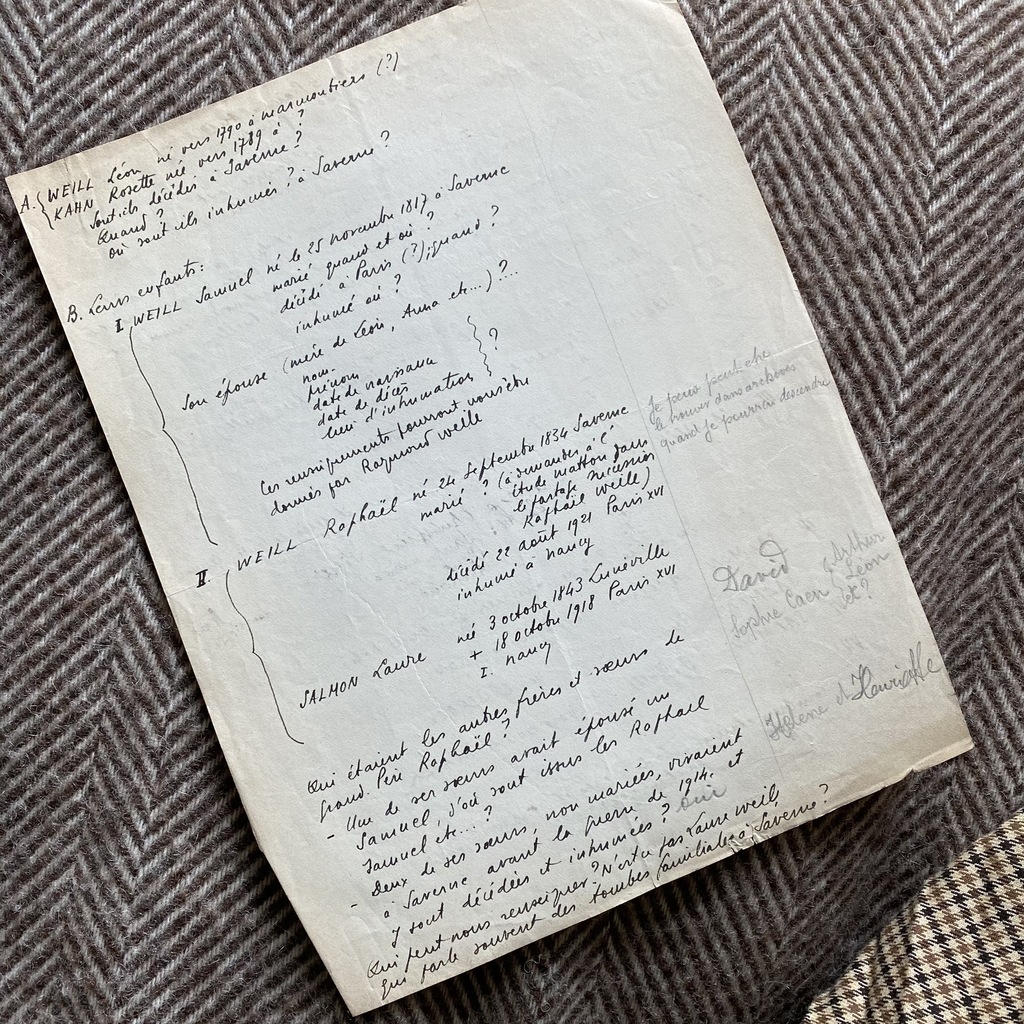 A. { WEILL Léon né vers 1790 à Marmoutiers (?)
KAHN Rosette née vers 1789 à ?
Sont-ils décédés à Saverne ?
Quand ?
où sont ils inhumés ? à Saverne ?
B. Leurs enfants :
I WEILL Samuel né le 25 novembre 1817 à Saverne
marié quand et où ?
décédé à Paris (?) ; quand ?
inhumé où ?
Son épouse (mère de Léon, Anna etc...) ?..
nom.
prénom
date de naissance
date de décès
lieu d'inhumation
?
Ces renseignements pourront nous être
donnés par Raymond Weille
Je peux peut-être
le trouver dans archives
quand je pourrai descendre
II. WEILL Raphaël né 24 Septembre 1834 Saverne
marié ? (à demander à l'
étude Matton dans
le partage succession
Raphaël Weille)
décédé 22 août 1921 Paris XVI
inhumé à Nancy
SALMON Laure née 3 octobre 1843 Lunéville
+ 18 octobre 1918 Paris XVI
I. Nancy
David
Sophie Caen, Arthur
Léon
et ?
Hélène et Henriette
Qui étaient les autres frères et sœurs de
Grand. Père Raphaël ?
- Une de ses sœurs avait épousé un
Samuel, d'où sont issus les Raphael
Samuel etc... ?
- Deux de ses sœurs, non mariées, vivaient
à Saverne avant la guerre de 1914. et
y sont décédées et inhumées ? oui
Qui peut nous renseigner ? N'est-ce pas Laure Weill
qui parle souvent des tombes familiales à Saverne ?